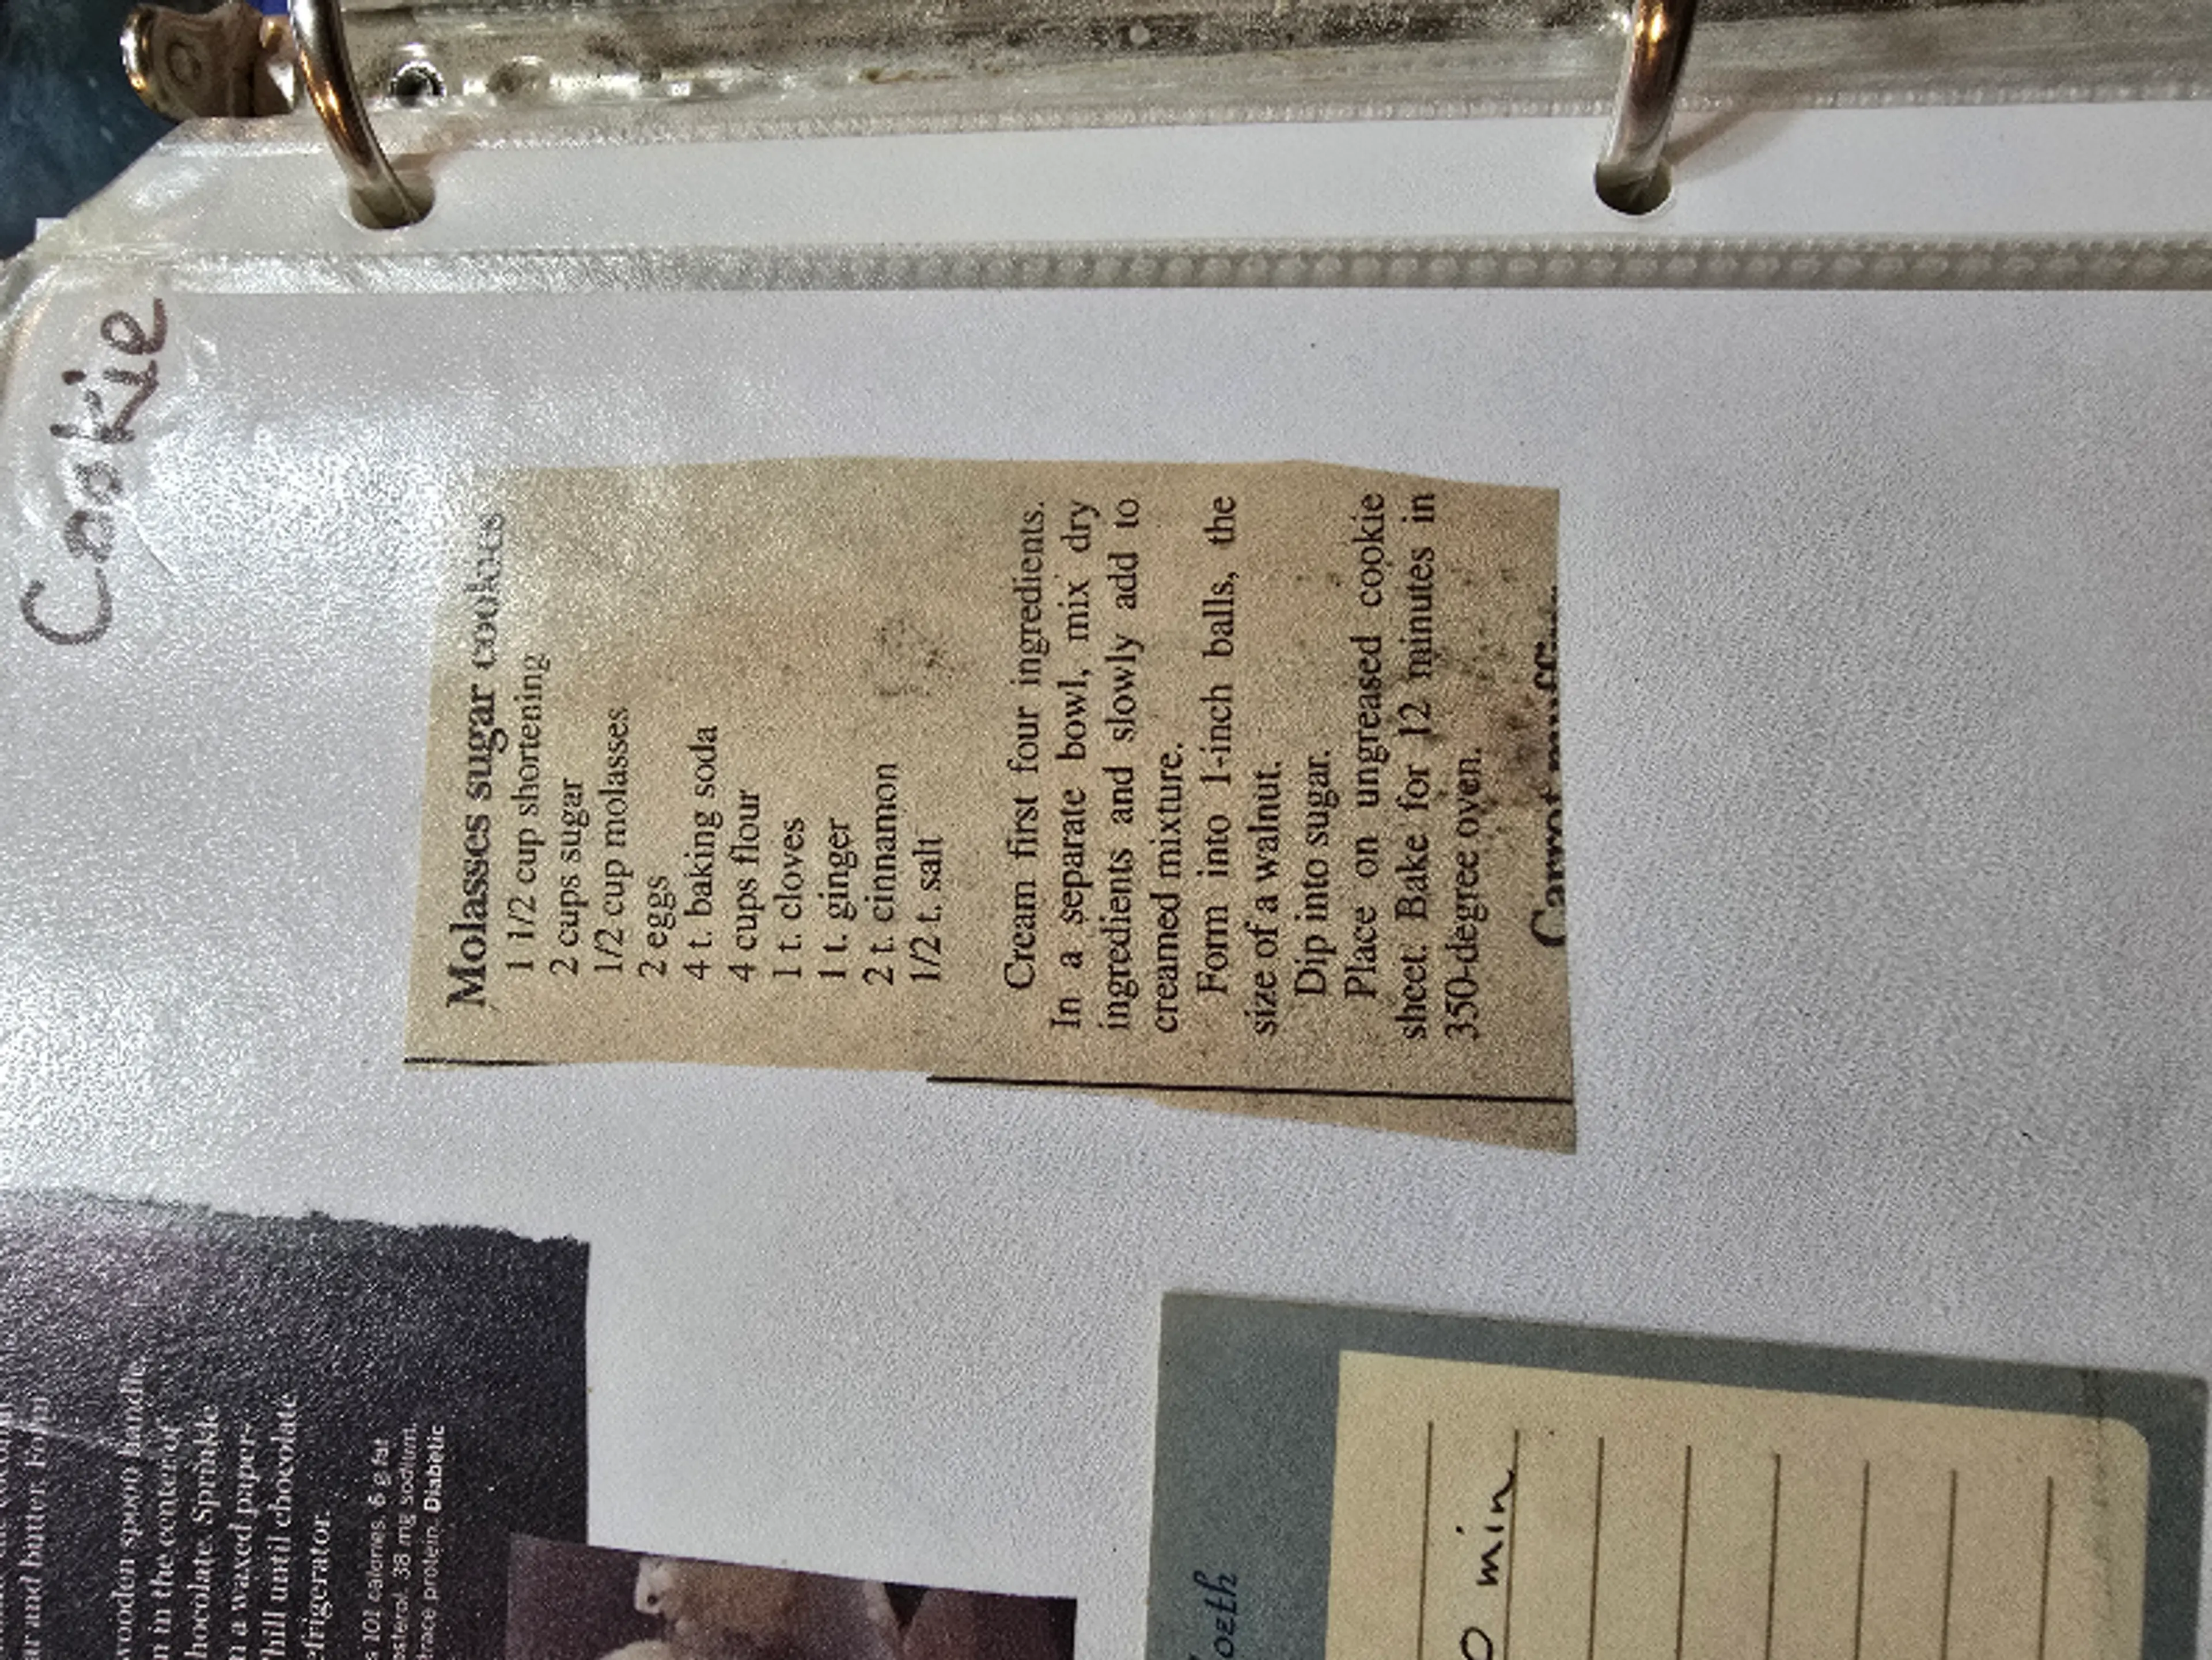 Cookie
Molasses sugar cookies
1 1/2 cup shortening
2 cups sugar
1/2 cup molasses
2 eggs
4 t. baking soda
4 cups flour
1 t. cloves
1 t. ginger
2 t. cinnamon
1/2 t. salt
Cream first four ingredients.
In a separate bowl, mix dry
ingredients and slowly add to
creamed mixture.
Form into 1-inch balls, the
size of a walnut.
Dip into sugar.
Place on ungreased cookie
sheet. Bake for 12 minutes in
350-degree oven.
Carrot
and butter. Form
wooden spoon handle,
in the center of
hocolate. Sprinkle
a waxed paper-
hill until chocolate
efrigerator.
101 calories, 6 g fat
esterol, 38 mg sodium,
trace protein. Diabetic
oeth
0 min